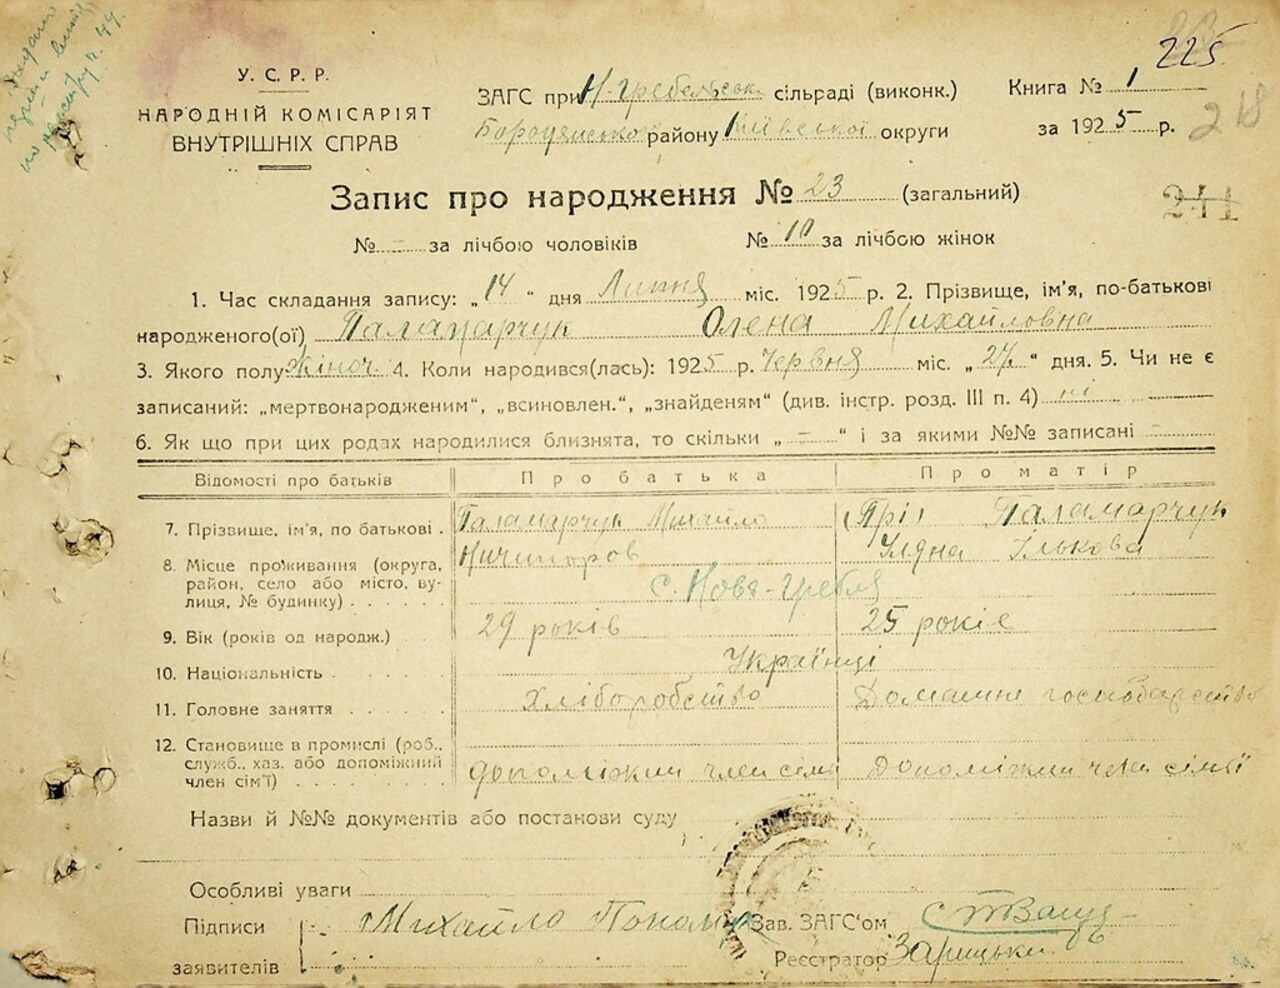 225
У.С.Р.Р.
НАРОДНІЙ КОМІСАРІЯТ
ВНУТРІШНІХ СПРАВ
ЗАГС при Н-Гребельськ. сільраді (виконк.)
Бородянсько району Київської округи
Книга № 1
за 1925 р.
218
Запис про народження № 23 (загальний)
241
№ - за лічбою чоловіків № 10 за лічбою жінок
1. Час складання запису: „14“ дня Липня міс. 1925 р. 2. Прізвище, ім'я, по-батькові
народженого(ої) Паламарчук Олена Михайловна
3. Якого полу жіноч. 4. Коли народився(лась): 1925 р. Червня міс. „27“ дня. 5. Чи не є
записаний: „мертвонародженим“, „всиновлен.“, „знайденям“ (див. інстр. розд. III п. 4) ні
6. Як що при цих родах народилися близнята, то скільки „-“ і за якими №№ записані -
Відомості про батьків Про батька Про матір
7. Прізвище, ім'я, по батькові . Паламарчук Михайло Ничипоров Паламарчук УлянаІлькова
8. Місце проживання (округа,
район, село або місто, ву-
лиця, № будинку) . . . . . . с. Нова-Гребля
9. Вік (років од народж.) . . 29 років 25 років
10. Національність . . . . . Українці
11. Головне заняття . . . . . Хліборобство Домашне господарство
12. Становище в промислі (роб.,
служб., хаз. або допоміжний
член сім'ї) . . . . . . . . допоміжний член сімї Допоміжний член сімьї
Назви й №№ документів або постанови суду
Особливі уваги
Підписи
заявителів
Михайло Поном
Зав. ЗАГС'ом
Реєстратор Зарицький